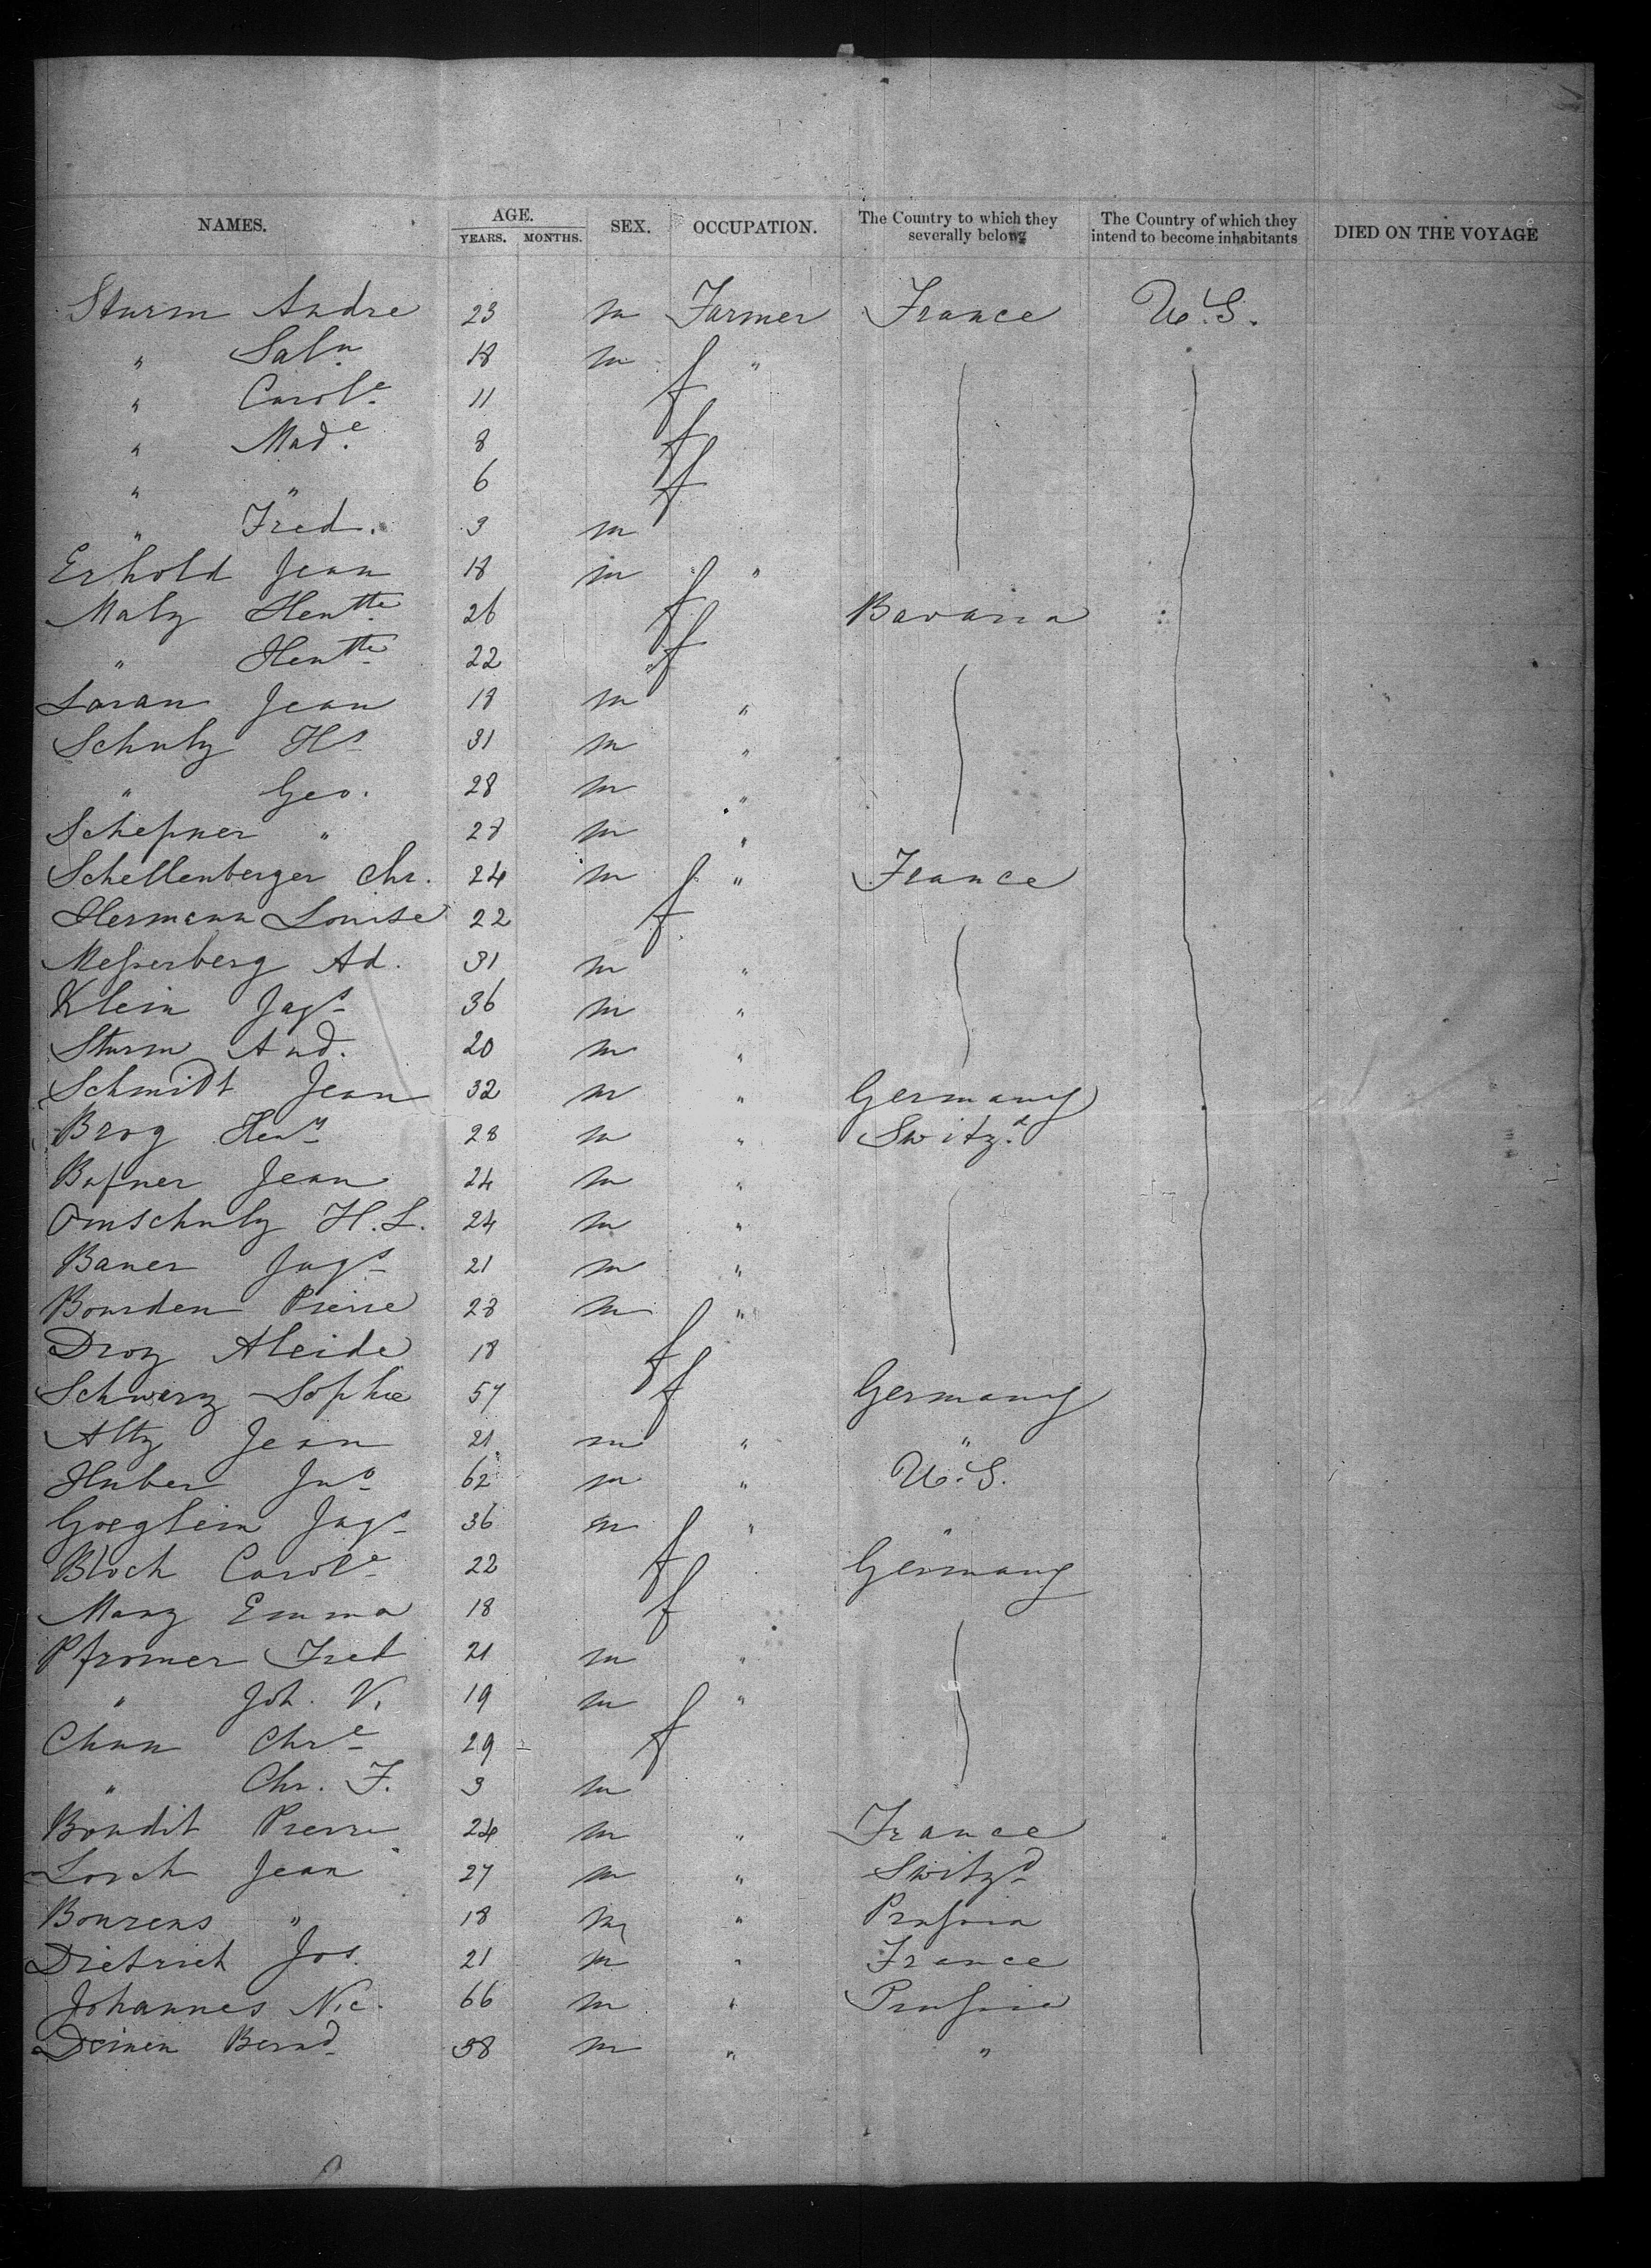 NAMES. AGE. YEARS. MONTHS. SEX. OCCUPATION. The Country to which they severally belong The Country of which they intend to become inhabitants DIED ON THE VOYAGE
Sturm Andre 23 m Farmer France U.S.
" Saln 18 m "
" Carole 11 f
" Made 8 f
" " 6 f
" Fred. 3 m
Erhold Jean 18 m "
Maly Hentte 26 f Bavaria
" Hentte 22 f
Laran Jean 18 m "
Schulz Hs 31 m "
" Geo. 28 m "
Schefsner " 28 m "
Schellenberger Chr. 24 m " France
Hermann Louise 22 f
Messerberg Ad. 31 m "
Klein Jaqs 36 m "
Sturm And. 20 m "
Schmidt Jean 32 m " Germany
Brog Heny 28 m " Switzd
Bafner Jean 24 m "
Omschulz H. L. 24 m "
Bauer Jaqs 21 m "
Bourden Pierre 28 m "
Droz Aleide 18 f
Schwarz Sophie 57 f Germany
Altz Jean 21 m " "
Huber Jno 62 m " U.S.
Goeglein Jaqs 36 m " "
Bloch Carole 22 f Germany
Manz Emma 18 f
Pfromer Fred 21 m "
" Joh. V. 19 m "
Chun Chre 29 f
" Chr. F. 3 m
Bondit Pierre 24 m " France
Lorch Jean 27 m " Switzd
Bourens " 18 m " Prussia
Dietrich Jos. 21 m " France
Johannes Nic. 66 m " Prussia
Deinen Bernd 38 m " "